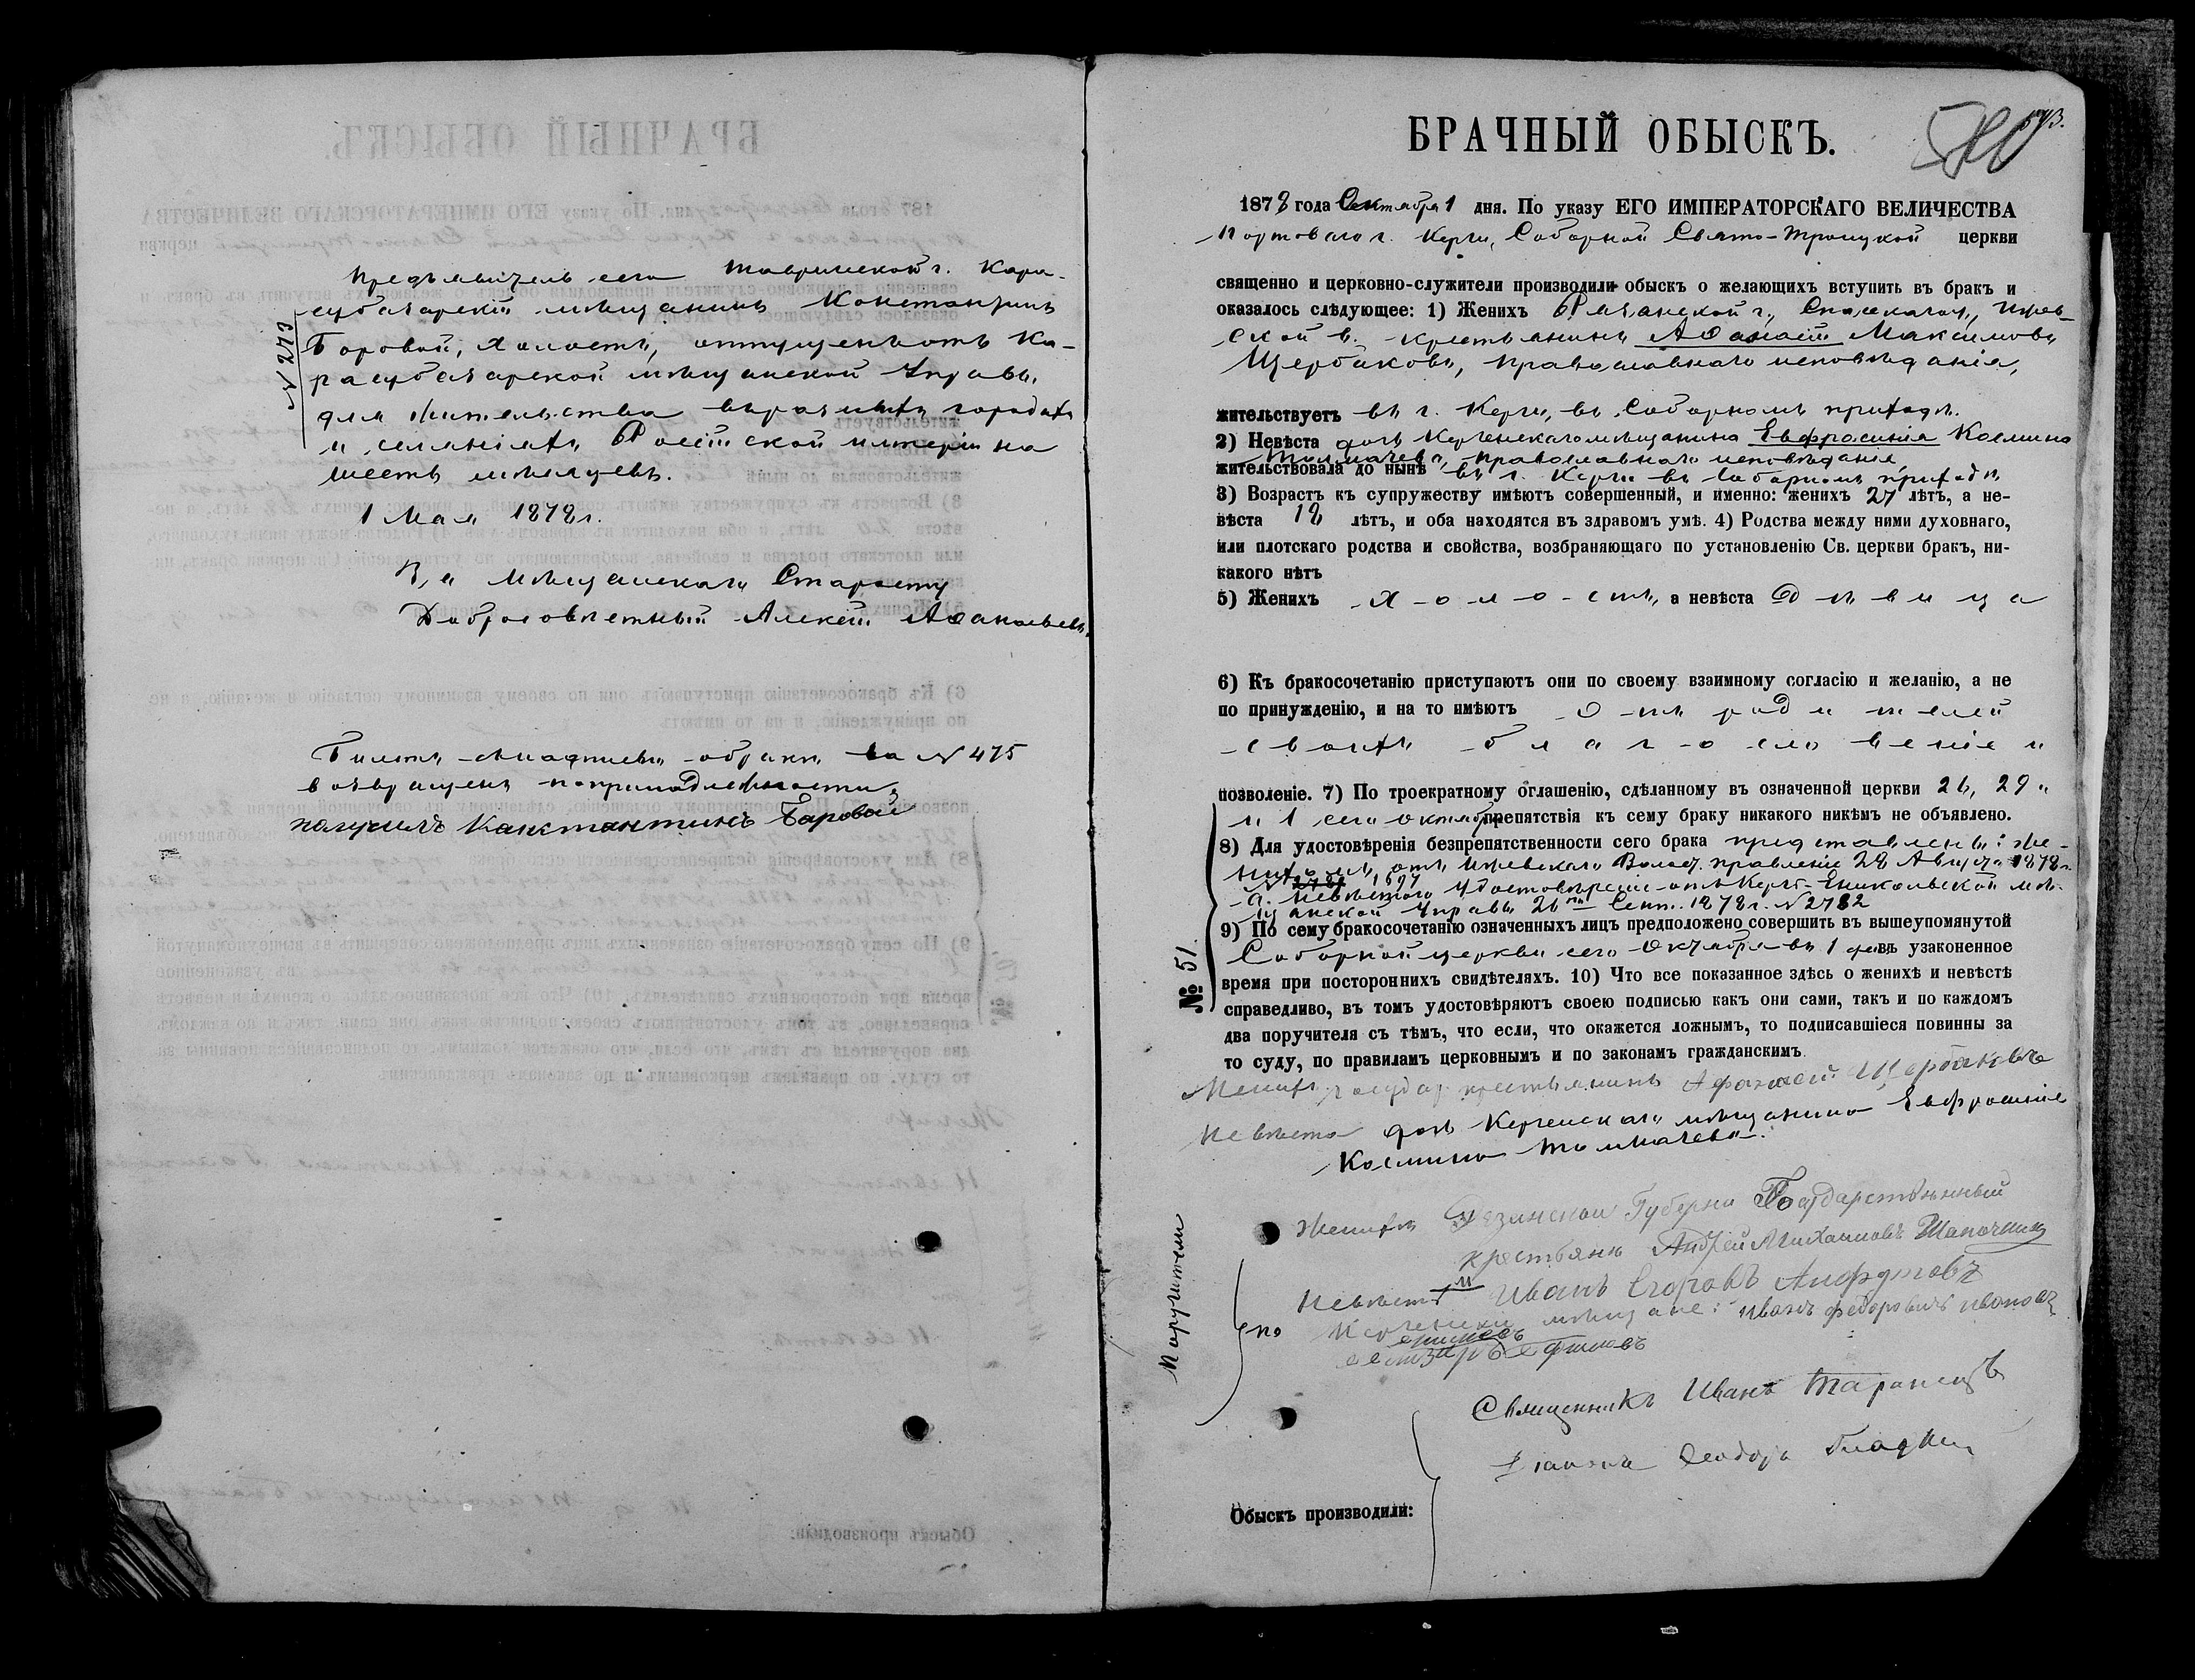 № 273
Предъявитель сего Таврической г. Кара-
субазарскій мѣщанинъ Константинъ
Боровой, холостъ, отпущенъ отъ Ка-
расубазарской мѣщанской Управы
для жительства въ разныхъ городахъ
и селеніяхъ Россійской имперіи на
шесть мѣсяцевъ.
1 Мая 1878 г.
За мѣщанскаго Старосту
Добросовѣстный Алексѣй Аѳанасьевъ.
Билетъ обратно за № 475
возвращенъ по принадлежности
получилъ Канстантинъ Баровой
БРАЧНЫЙ ОБЫСКЪ.
1878 года Сентября 1 дня. По указу ЕГО ИМПЕРАТОРСКАГО ВЕЛИЧЕСТВА
Портоваго г. Керчи, Соборной Свято-Троицкой церкви
священно и церковно-служители производили обыскъ о желающихъ вступить въ бракъ и
оказалось слѣдующее: 1) Женихъ Рязанской г., Спасскаго у., Ижев-
ской в. крестьянинъ Аѳанасій Максимовъ
Щербаковъ, православнаго исповѣданія,
жительствуетъ въ г. Керчи, въ Соборномъ приходѣ.
2) Невѣста дочь Керченскаго мѣщанина Евфросинія Космина
Толмачева, православнаго исповѣданія,
жительствовала до нынѣ въ г. Керчи въ Соборномъ приходѣ
3) Возрастъ къ супружеству имѣютъ совершенный, и именно: женихъ 27 лѣтъ, а не-
вѣста 18 лѣтъ, и оба находятся въ здравомъ умѣ. 4) Родства между ними духовнаго,
или плотскаго родства и свойства, возбраняющаго по установленію Св. церкви бракъ, ни-
какого нѣтъ
5) Женихъ холостъ, а невѣста дѣвица
6) Къ бракосочетанію приступаютъ они по своему взаимному согласію и желанію, а не
по принужденію, и на то имѣютъ отъ родителей
своихъ благословеніе и
позволеніе. 7) По троекратному оглашенію, сдѣланному въ означенной церкви 26, 29
и 1 сего октября препятствія къ сему браку никакого никѣмъ не объявлено.
8) Для удостовѣренія безпрепятственности сего брака представлены: же-
нихомъ, отъ Ижевскаго Волост. правленія 28 Августа 1878 г.
№ 1697
а невѣстою удостовѣреніе отъ Керчь-Еникольской мѣ-
щанской Управы 26 Сент. 1878 г. № 2782
9) По сему бракосочетанію означенныхъ лицъ предположено совершить въ вышеупомянутой
Соборной церкви сего Октября въ 1 день въ узаконенное
время при постороннихъ свидѣтеляхъ. 10) Что все показанное здѣсь о женихѣ и невѣстѣ
справедливо, въ томъ удостовѣряютъ своею подписью какъ они сами, такъ и по каждомъ
два поручителя съ тѣмъ, что если, что окажется ложнымъ, то подписавшіеся повинны за
то суду, по правиламъ церковнымъ и по законамъ гражданскимъ
№ 51.
Женихъ государ крестьянинъ Афонасій Щербаковъ
Невѣста дочь Керченскаго мѣщанина Евфросинія
Космина Толмачева.
Поручители
по
Женихѣ Рязанской Губерни Государственный
крестьянъ Андрей Михаиловъ
и Иванъ Егоровъ
Невѣстѣ
Керченски мѣщане: Иванъ федоровичъ ивановъ
Священникъ Иванъ
Діаконъ Ѳеодоръ
Обыскъ производили: